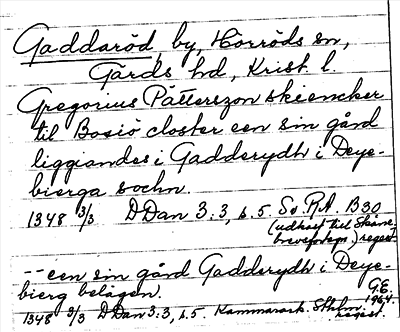 Gaddaröd, by, Hörröds sn,
Gärds hd, Krist. l.
Gregorius Pätterszon skiencker
til Bosiö closter een sin gård
liggiandes i Gadderydh i Deye-
bierga sochn.
1348 3/3 DDan 3:3, s. 5 Sv. R.A. B30
(udkast till Skåne-
brevfortegn.) regest.
-- een sin gård Gadderydh i Deye-
bierg belägen.
G.E.
1964.
1348 3/3 DDan 3:3, s. 5. Kammarark. Sthlm.
regest.